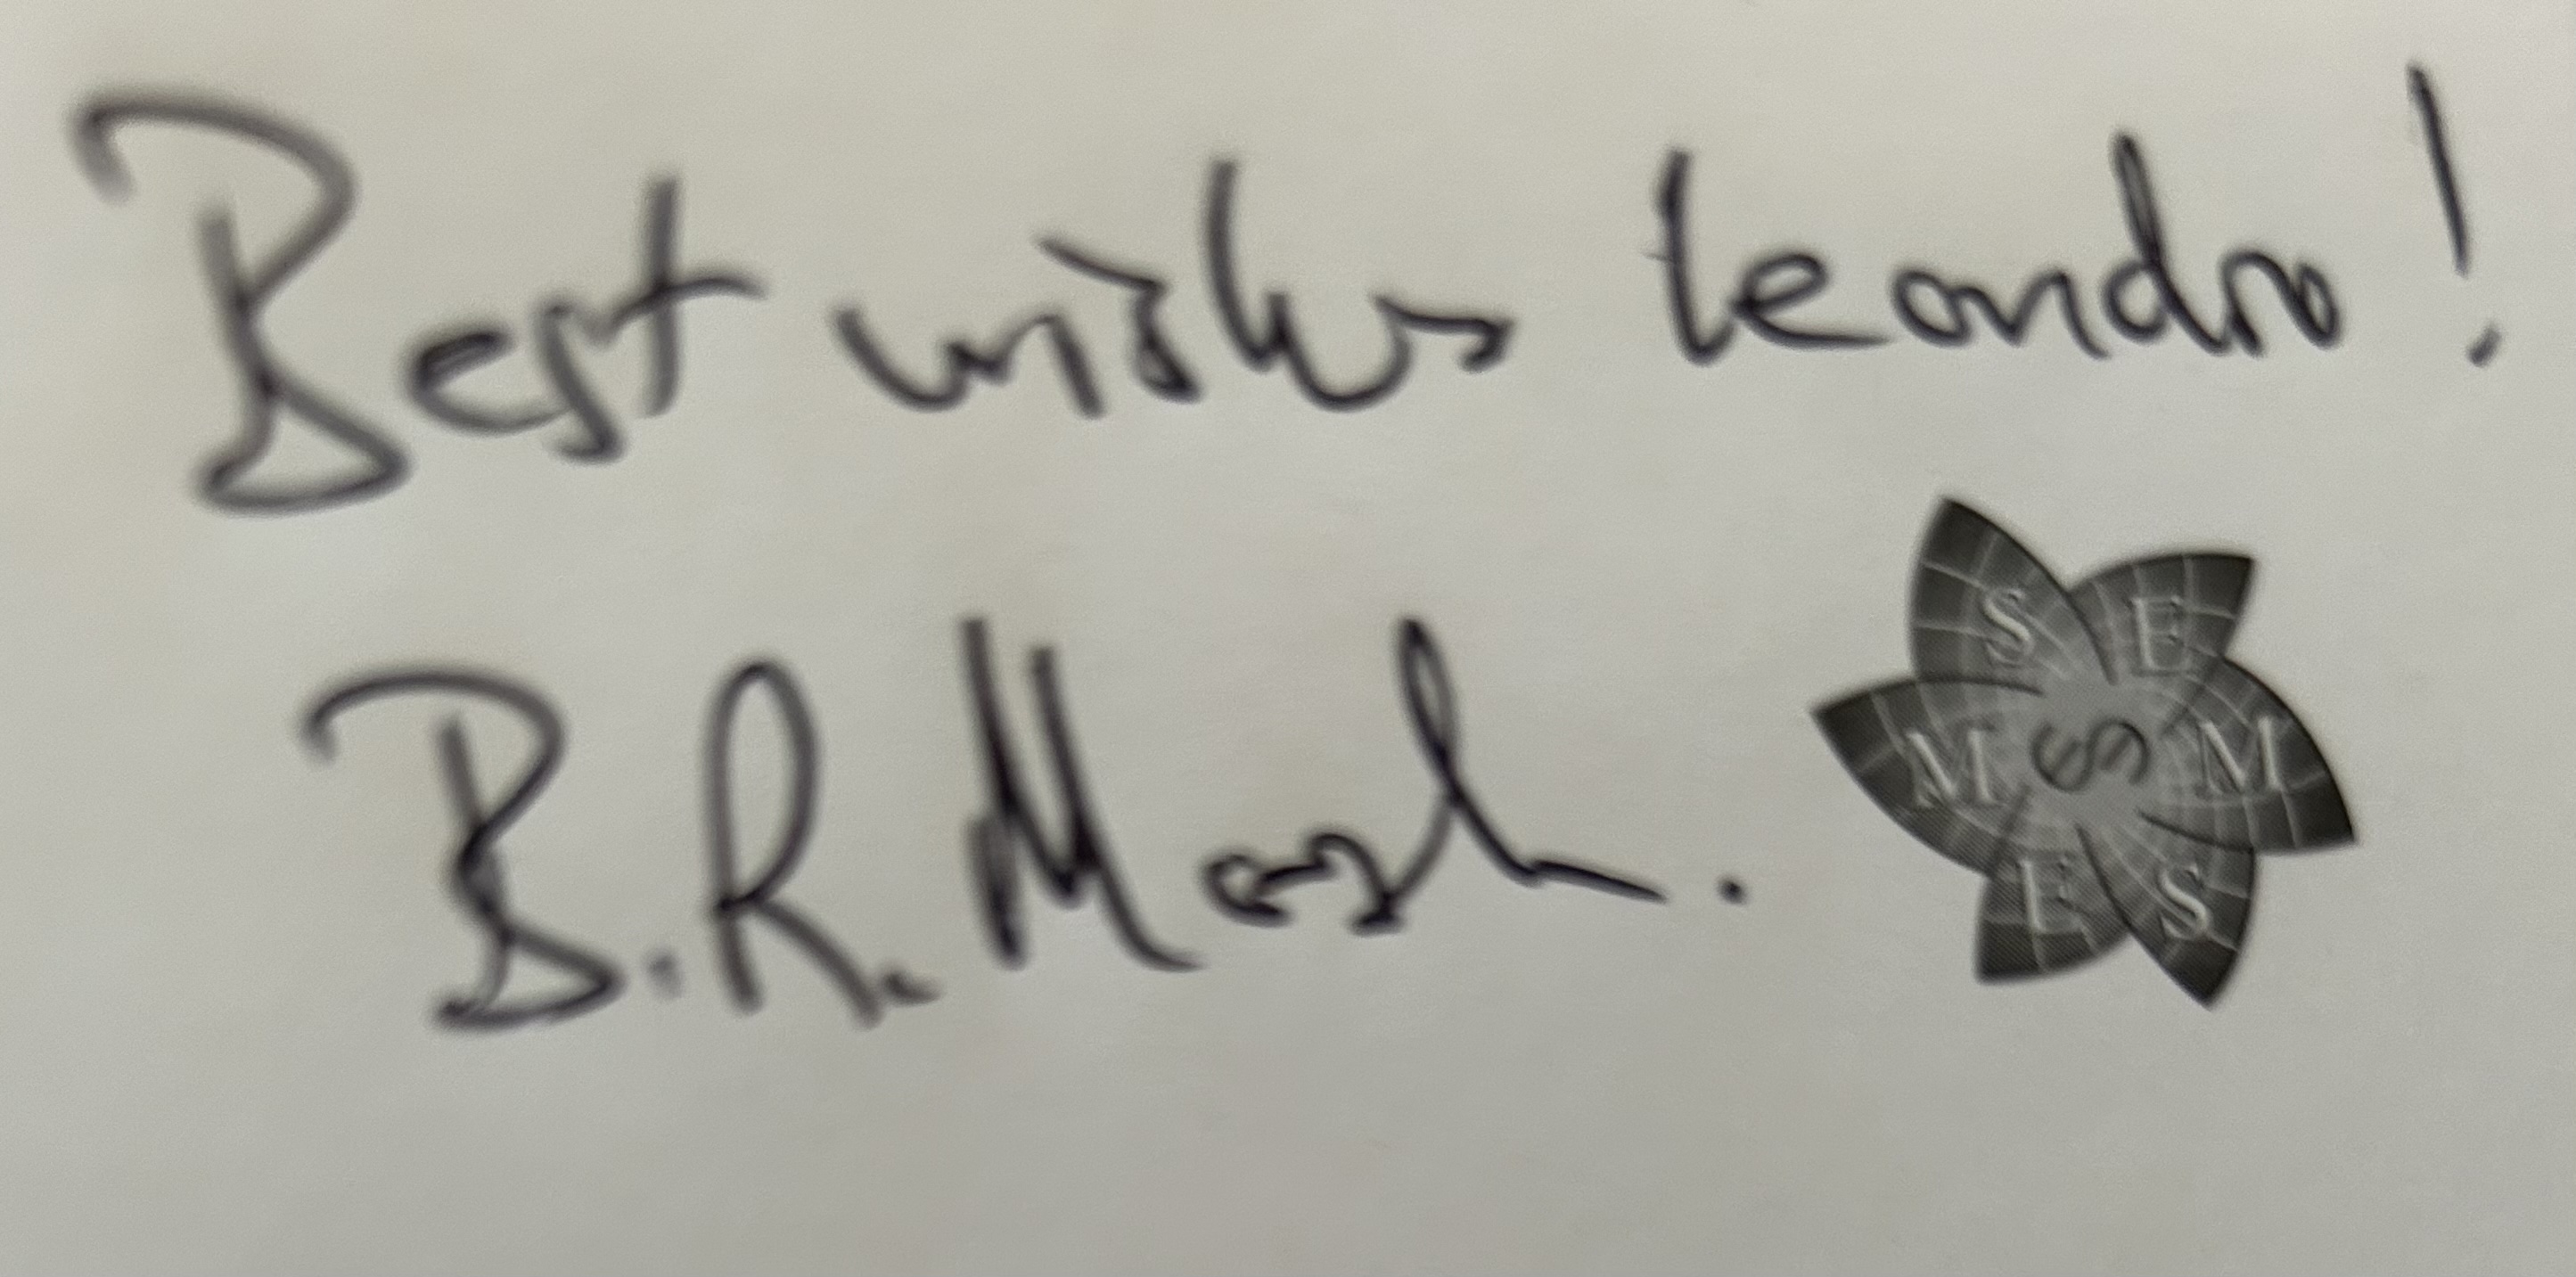 Best wishes Leandro!
B.R. Mash.
S E
M S M
E S